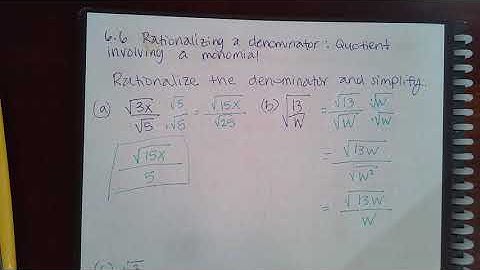 6.6 Rationalizing a denominator: Quotient
involving a monomial
Rationalize the denominator and simplify.
(a) √3x/√5 · √5/√5 = √15x/√25 (b) √13/w = √13/√w · √w/√w
√15x/5 = √13w/√w²
= √13w/w
(c) √3